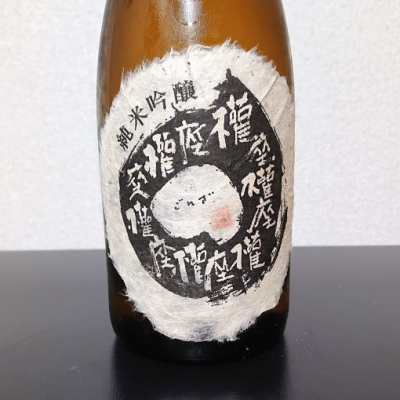 純米吟醸
權座權座權座權座權座權座
ごんざ